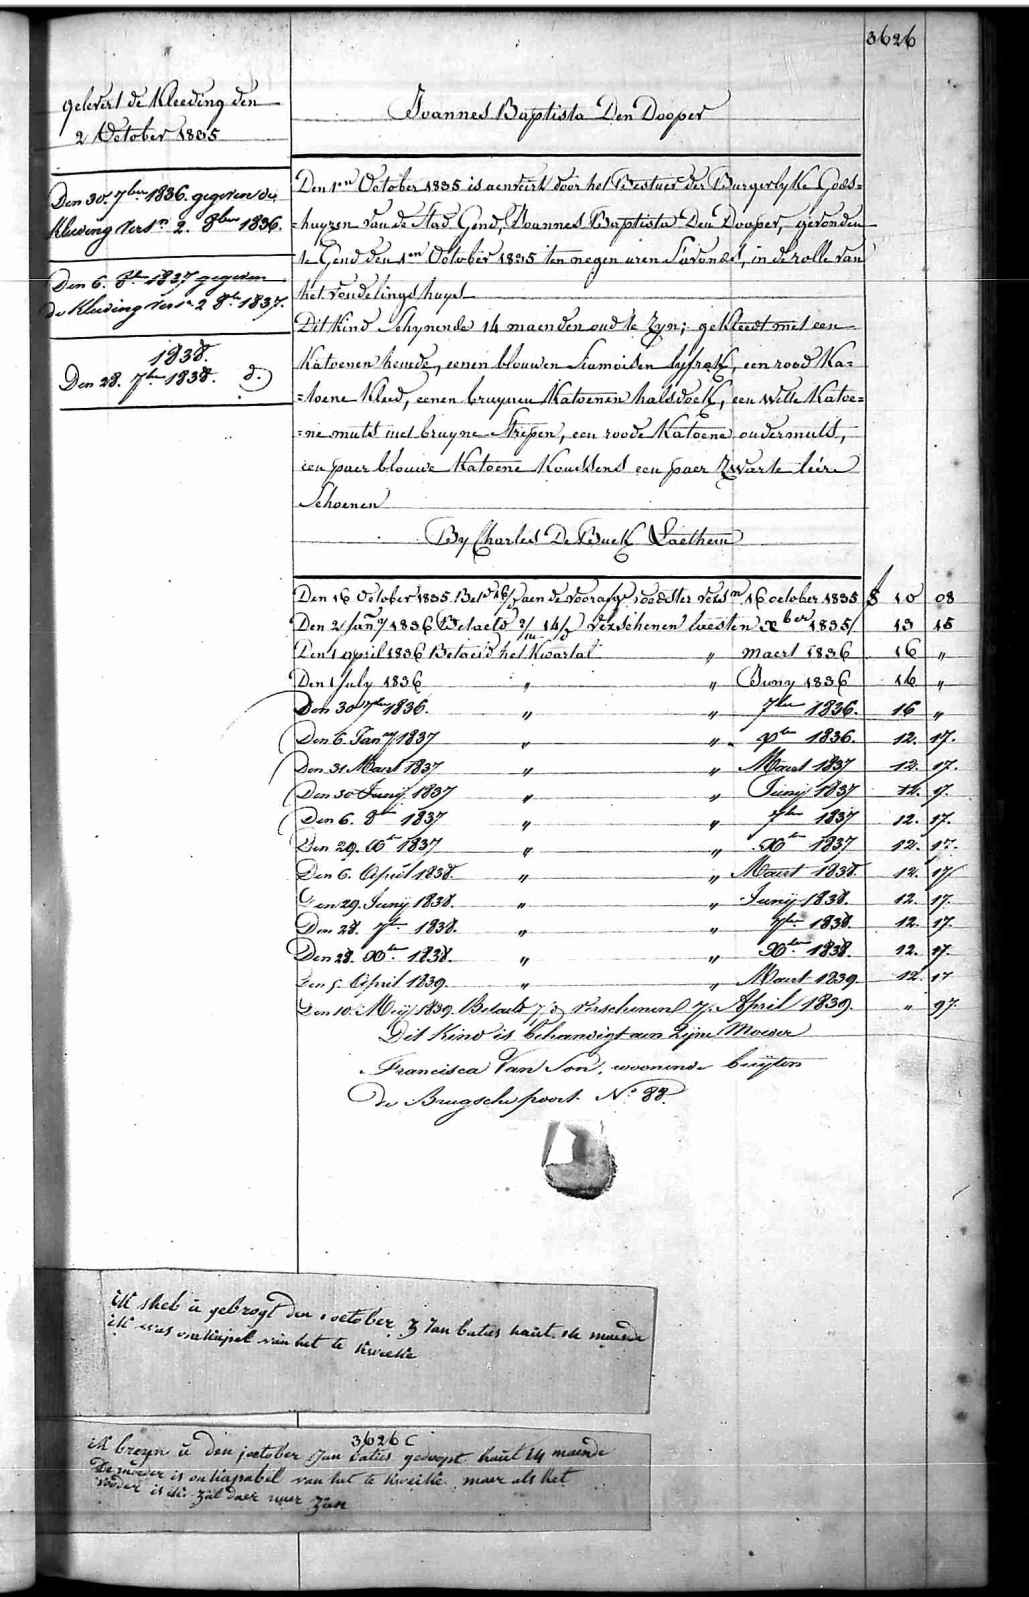 3626
gelevert de Kleeding den
2 October 1835
Den 30. 7ber 1836. gegeven de
Kleeding versn. 2. 8ber 1836.
Den 6. 8br 1837 gegeven
de Kleeding versn 2 8br 1837.
1838.
Den 28. 7ber 1838. d.
Joannes Baptista Den Dooper
Den 1en October 1835 is aenveirt door het Bestuer der Burgerlyke Gods-
=huyzen van de Stad Gend, Joannes Baptista Den Dooper, gevonden
te Gend den 1en October 1835 ten negen uren Savonds, in de rolle van
het vondelings huys
Dit Kind Schynende 14 maenden oud te Zyn; gekleedt met een
Katoenen hemde, eenen blouwen Siamoisen lyfrok, een rood Ka-
=toene Kleed, eenen bruynen Katoenen halsdoek, een witte Katoe=
=ne muts met bruyne Strepen, een roode Katoene ondermuts,
een paer blouwe Katoene Koussens een paer Zwarte leire
Schoenen
By Charles De Buck Laethem
Den 16 October 1835. Bet. aen de voorafge voedster versn 16 october 1835 10 08
Den 2 Jany 1836 Betaeld verschenen lesten Xber 1835 13 15
Den 1 april 1836 Betaeld het Kwartal " maert 1836 16 "
Den 1 July 1836 " " Juny 1836 16 "
Den 30 7ber 1836. " " 7ber 1836. 16 "
Den 6. Jany 1837 " " Xber 1836. 12. 17.
Den 31 Maert 1837 " " Maert 1837 12. 17.
Den 30 Junij 1837 " " Junij 1837 12. 17.
Den 6. 8br 1837 " " 7ber 1837 12. 17.
Den 29. Xbr 1837 " " Xber 1837 12. 17.
Den 6. April 1838. " " Maert 1838. 12. 17
Den 29. Junij 1838. " " Junij 1838. 12. 17.
Den 28. 7br 1838. " " 7ber 1838. 12. 17.
Den 28. Xber 1838. " " Xber 1838. 12. 17.
Den 5 April 1839. " " Maert 1839. 12. 17
Den 10. Meij 1839. Betaelt verschenen April 1839. " 97.
Dit Kind is behandigt aen Zijne Moeder
Francisca Van Son, woonende buijten
de Brugsche poort. No. 88.
ik sheb u gebrogt den 1 october Jan baties haut 14 maende
ik was onkapel van het te kweeke
3626 C
ik breyn u den 1 october Jan baties gedoopt haut 14 maende
De moeder is onkapabel van het te kweeke, maer als het
is ik zal daer naer zien